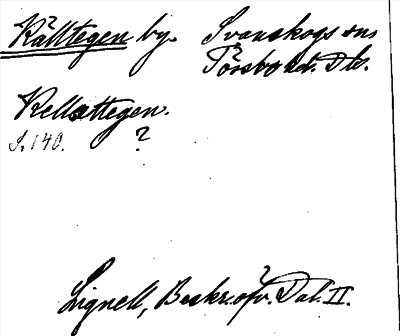 Källtegen by. Svanskogs sn
Tössbo hd. Dls.
Kellattegen.
S. 140. ?
Lignell, Beskr. öfv. Dal. II.